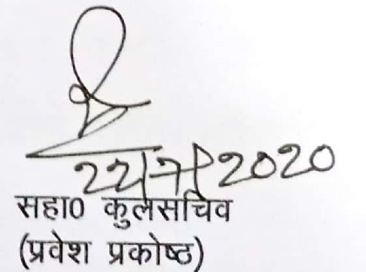 22/7/2020
सहा0 कुलसचिव
(प्रवेश प्रकोष्ठ)